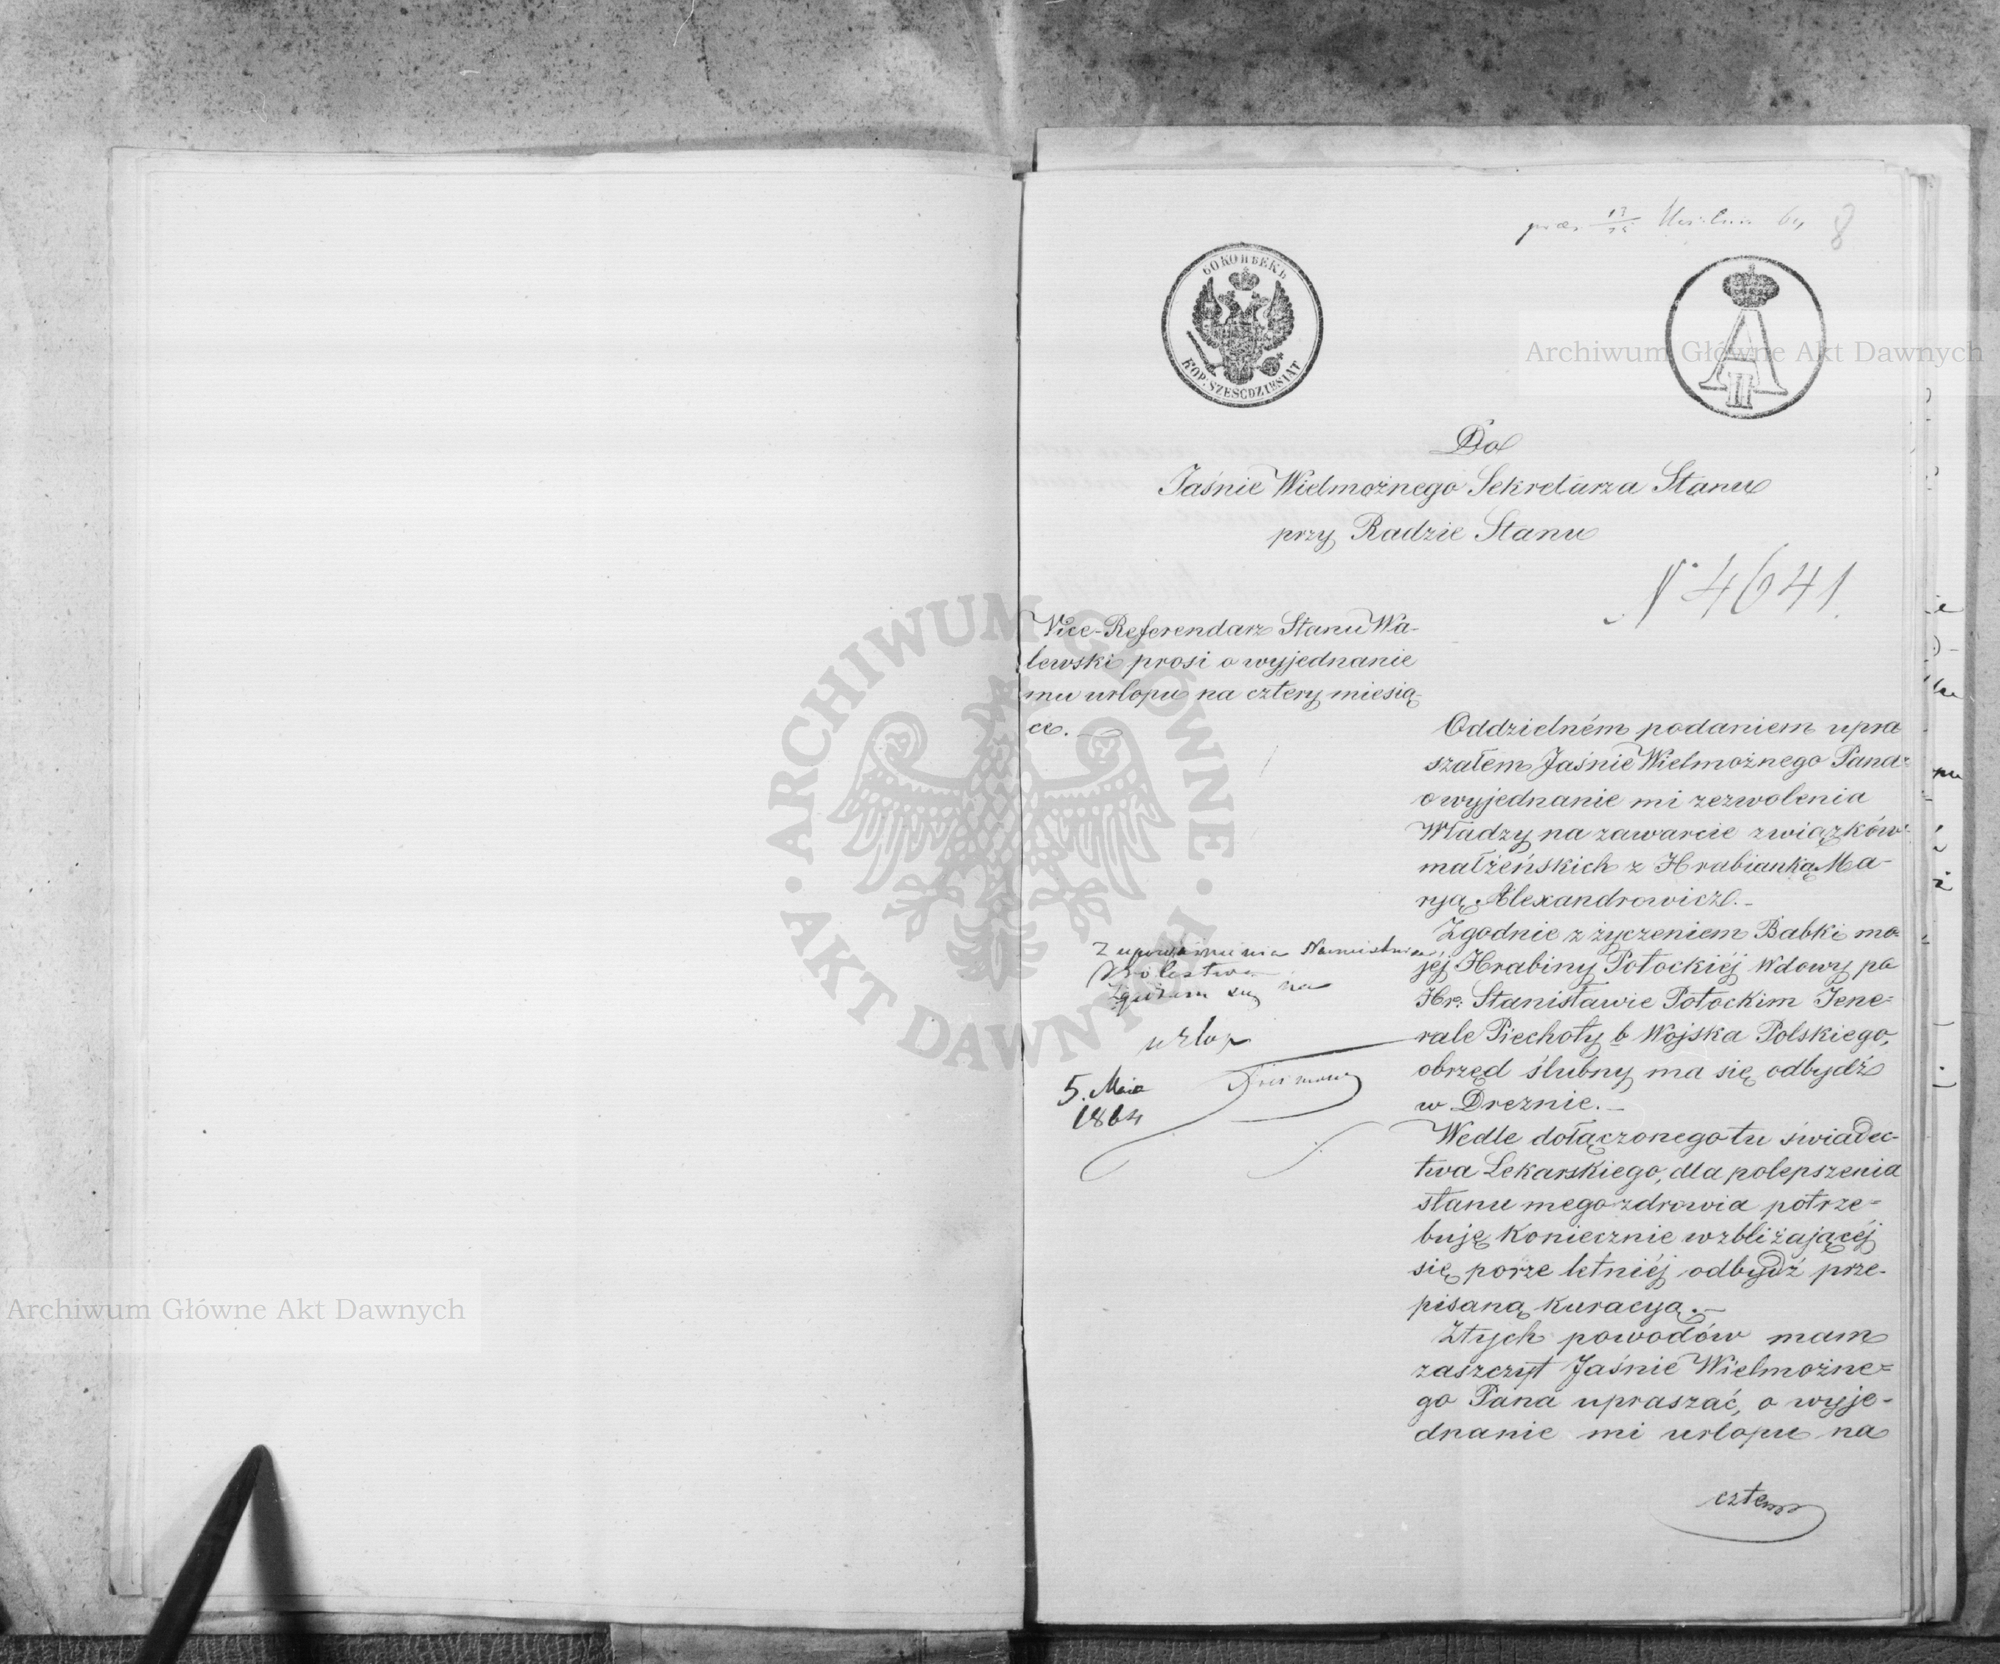 8
60 КОПѢЕКЪ
KOP. SZEŚĆDZIESIĄT
A II
Do
Jaśnie Wielmożnego Sekretarza Stanu
przy Radzie Stanu
N° 4641
Vice-Referendarz Stanu Wa-
lewski prosi o wyjednanie
mu urlopu na cztery miesią-
ce. —
Oddzielném podaniem upra
szałem Jaśnie Wielmożnego Pana
o wyjednanie mi zezwolenia
Władzy na zawarcie związków
małżeńskich z Hrabianką Ma-
ryą Alexandrowicz. –
Zgodnie z życzeniem Babki mo-
jéj Hrabiny Potockiéj Wdowy po
Hr. Stanisławie Potockim Jene-
rale Piechoty b Wojska Polskiego,
obrzęd ślubny ma się odbydź
w Dreznie. –
Wedle dołączonego tu świadec-
twa Lekarskiego, dla polepszenia
stanu mego zdrowia potrze-
buję koniecznie w zbliżającéj
się porze letniéj odbydź prze-
pisaną kuracyą. –
Z tych powodów mam
zaszczyt Jaśnie Wielmożne-
go Pana upraszać, o wyje-
dnanie mi urlopu na
cztery
Z upoważnienia Namiestnika
Królestwa
Zgadzam się na
urlop
5. Maja
1864
Archiwum Główne Akt Dawnych
Archiwum Główne Akt Dawnych
ARCHIWUM GŁÓWNE · AKT DAWNYCH ·